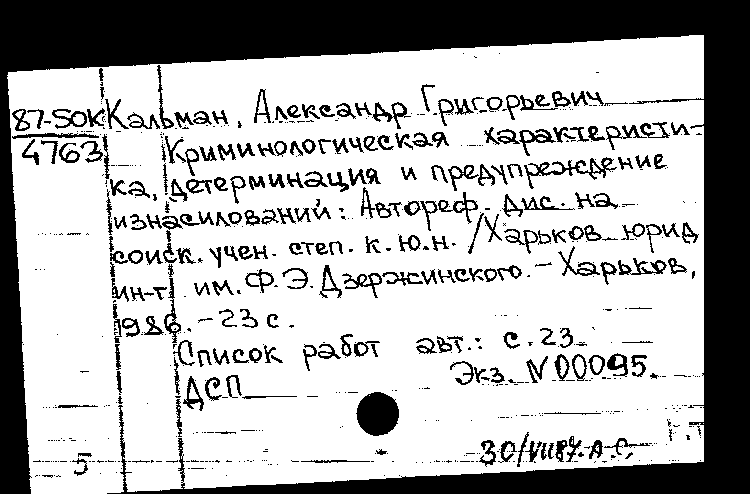 87-5ОК Кальман, Александр Григорьевич
4763 Криминологическая характеристи-
ка, детерминация и предупреждение
изнасилований: Автореф. дис. на
соиск. учен. степ. к.ю.н. /Харьков. юрид
ин-т. им. Ф.Э.Дзержинского. - Харьков,
1986. - 23 с.
Список работ авт.: с. 23
ДСП Экз. N 00095.
30/VII87. А.С.
5